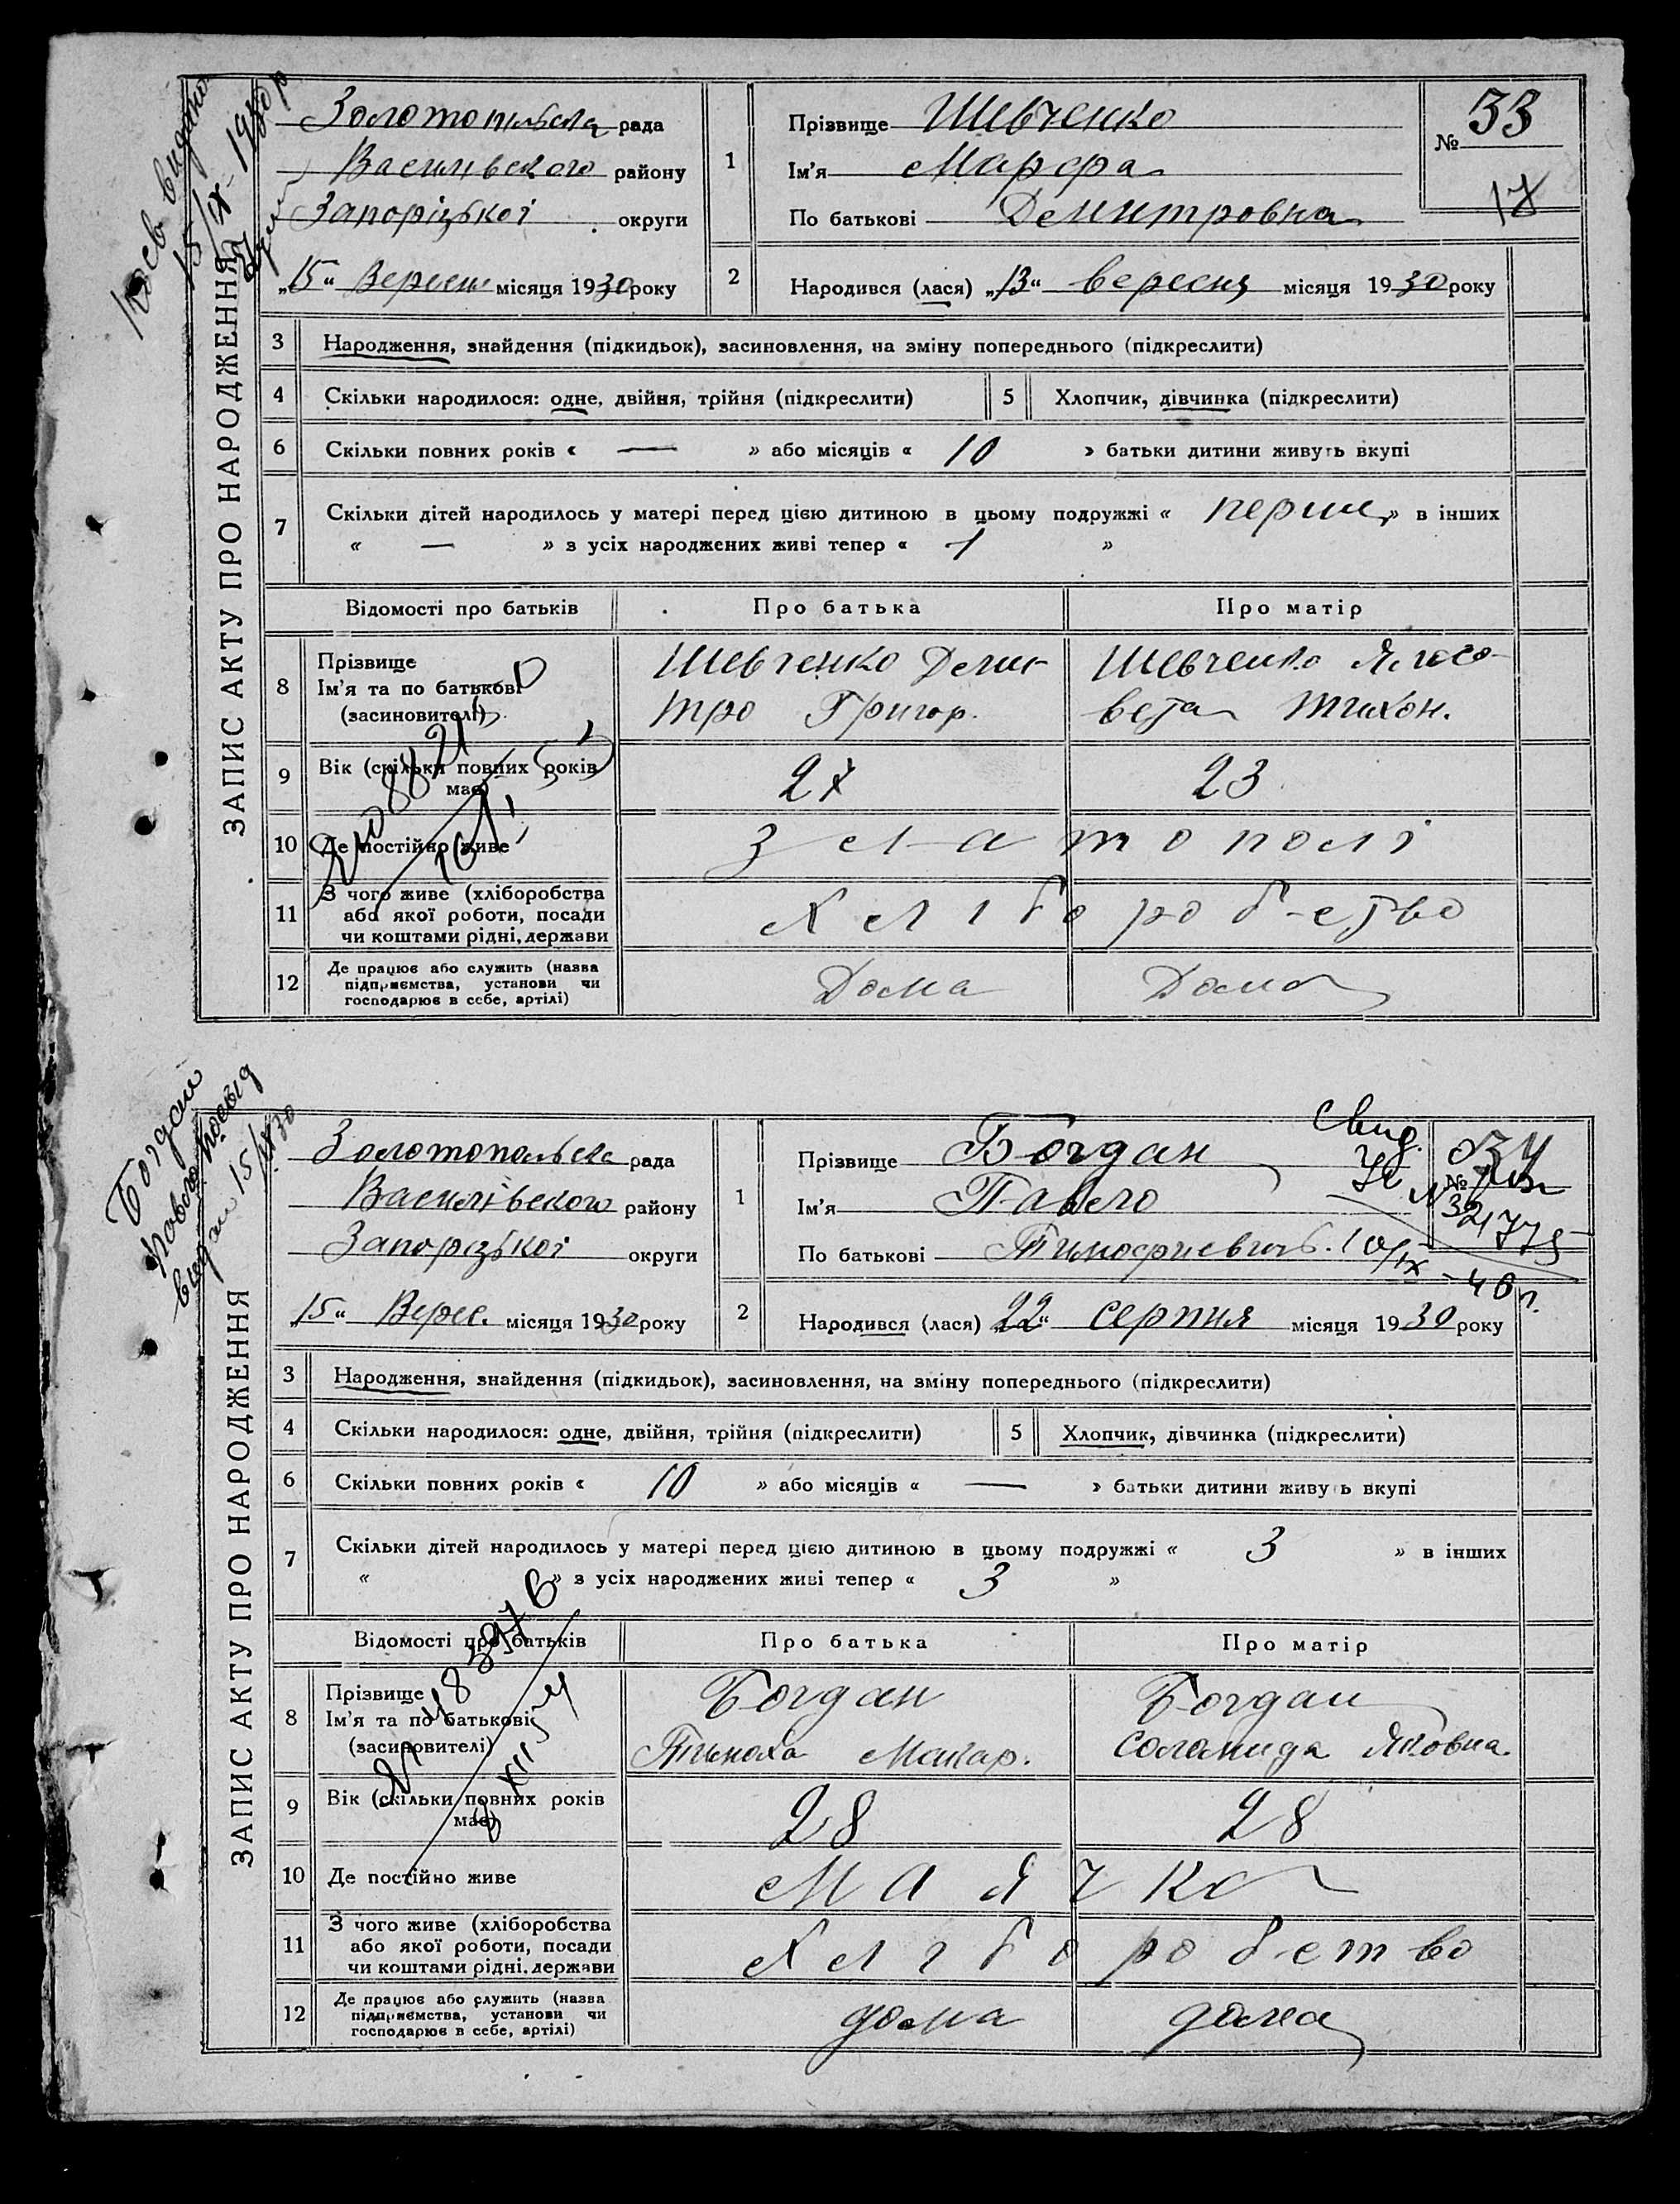 Золотопільська рада
Василівського району
Запорізької округи
„15“ Вересня місяця 1930 року
1
Прізвище Шевченко
Ім'я Марфа
По батькові Демитровна
№ 33
17
2
Народився (лася) „13“ вересня місяця 1930 року
ЗАПИС АКТУ ПРО НАРОДЖЕННЯ
3 Народження, знайдення (підкидьок), засиновлення, на зміну попереднього (підкреслити)
4 Скільки народилося: одне, двійня, трійня (підкреслити) 5 Хлопчик, дівчинка (підкреслити)
6 Скільки повних років « — » або місяців « 10 » батьки дитини живуть вкупі
7 Скільки дітей народилось у матері перед цією дитиною в цьому подружжі « перше » в інших
« — » з усіх народжених живі тепер « 1 »
Відомості про батьків Про батька Про матір
8 Прізвище
Ім'я та по батькові
(засиновителі)
Шевченко Деми-
тро Григор.
Шевченко
вета Тихон.
9 Вік (скільки повних років
має) 27 23
10 Де постійно живе Златополі
11 З чого живе (хліборобства
або якої роботи, посади
чи коштами рідні, держави
Хліборобство
12 Де працює або служить (назва
підприємства, установи чи
господарює в себе, артілі)
Дома Дома
Богдан
видан 15/IX 30
Золотопольська рада
Василівського району
Запорізької округи
„15“ Верес. місяця 1930 року
1
Прізвище Богдан
Ім'я Павло
По батькові Тимофиевич
Свид.
№
2
Народився (лася) „22“ серпня місяця 1930 року
ЗАПИС АКТУ ПРО НАРОДЖЕННЯ
3 Народження, знайдення (підкидьок), засиновлення, на зміну попереднього (підкреслити)
4 Скільки народилося: одне, двійня, трійня (підкреслити) 5 Хлопчик, дівчинка (підкреслити)
6 Скільки повних років « 10 » або місяців « — » батьки дитини живуть вкупі
7 Скільки дітей народилось у матері перед цією дитиною в цьому подружжі « 3 » в інших
« » з усіх народжених живі тепер « 3 »
Відомості про батьків Про батька Про матір
8 Прізвище
Ім'я та по батькові
(засиновителі)
Богдан
Тимоха Макар.
Богдан
Соломида Яковна.
9 Вік (скільки повних років
має) 28 28
10 Де постійно живе Маячка
11 З чого живе (хліборобства
або якої роботи, посади
чи коштами рідні, держави
Хліборобство
12 Де працює або служить (назва
підприємства, установи чи
господарює в себе, артілі)
дома дома